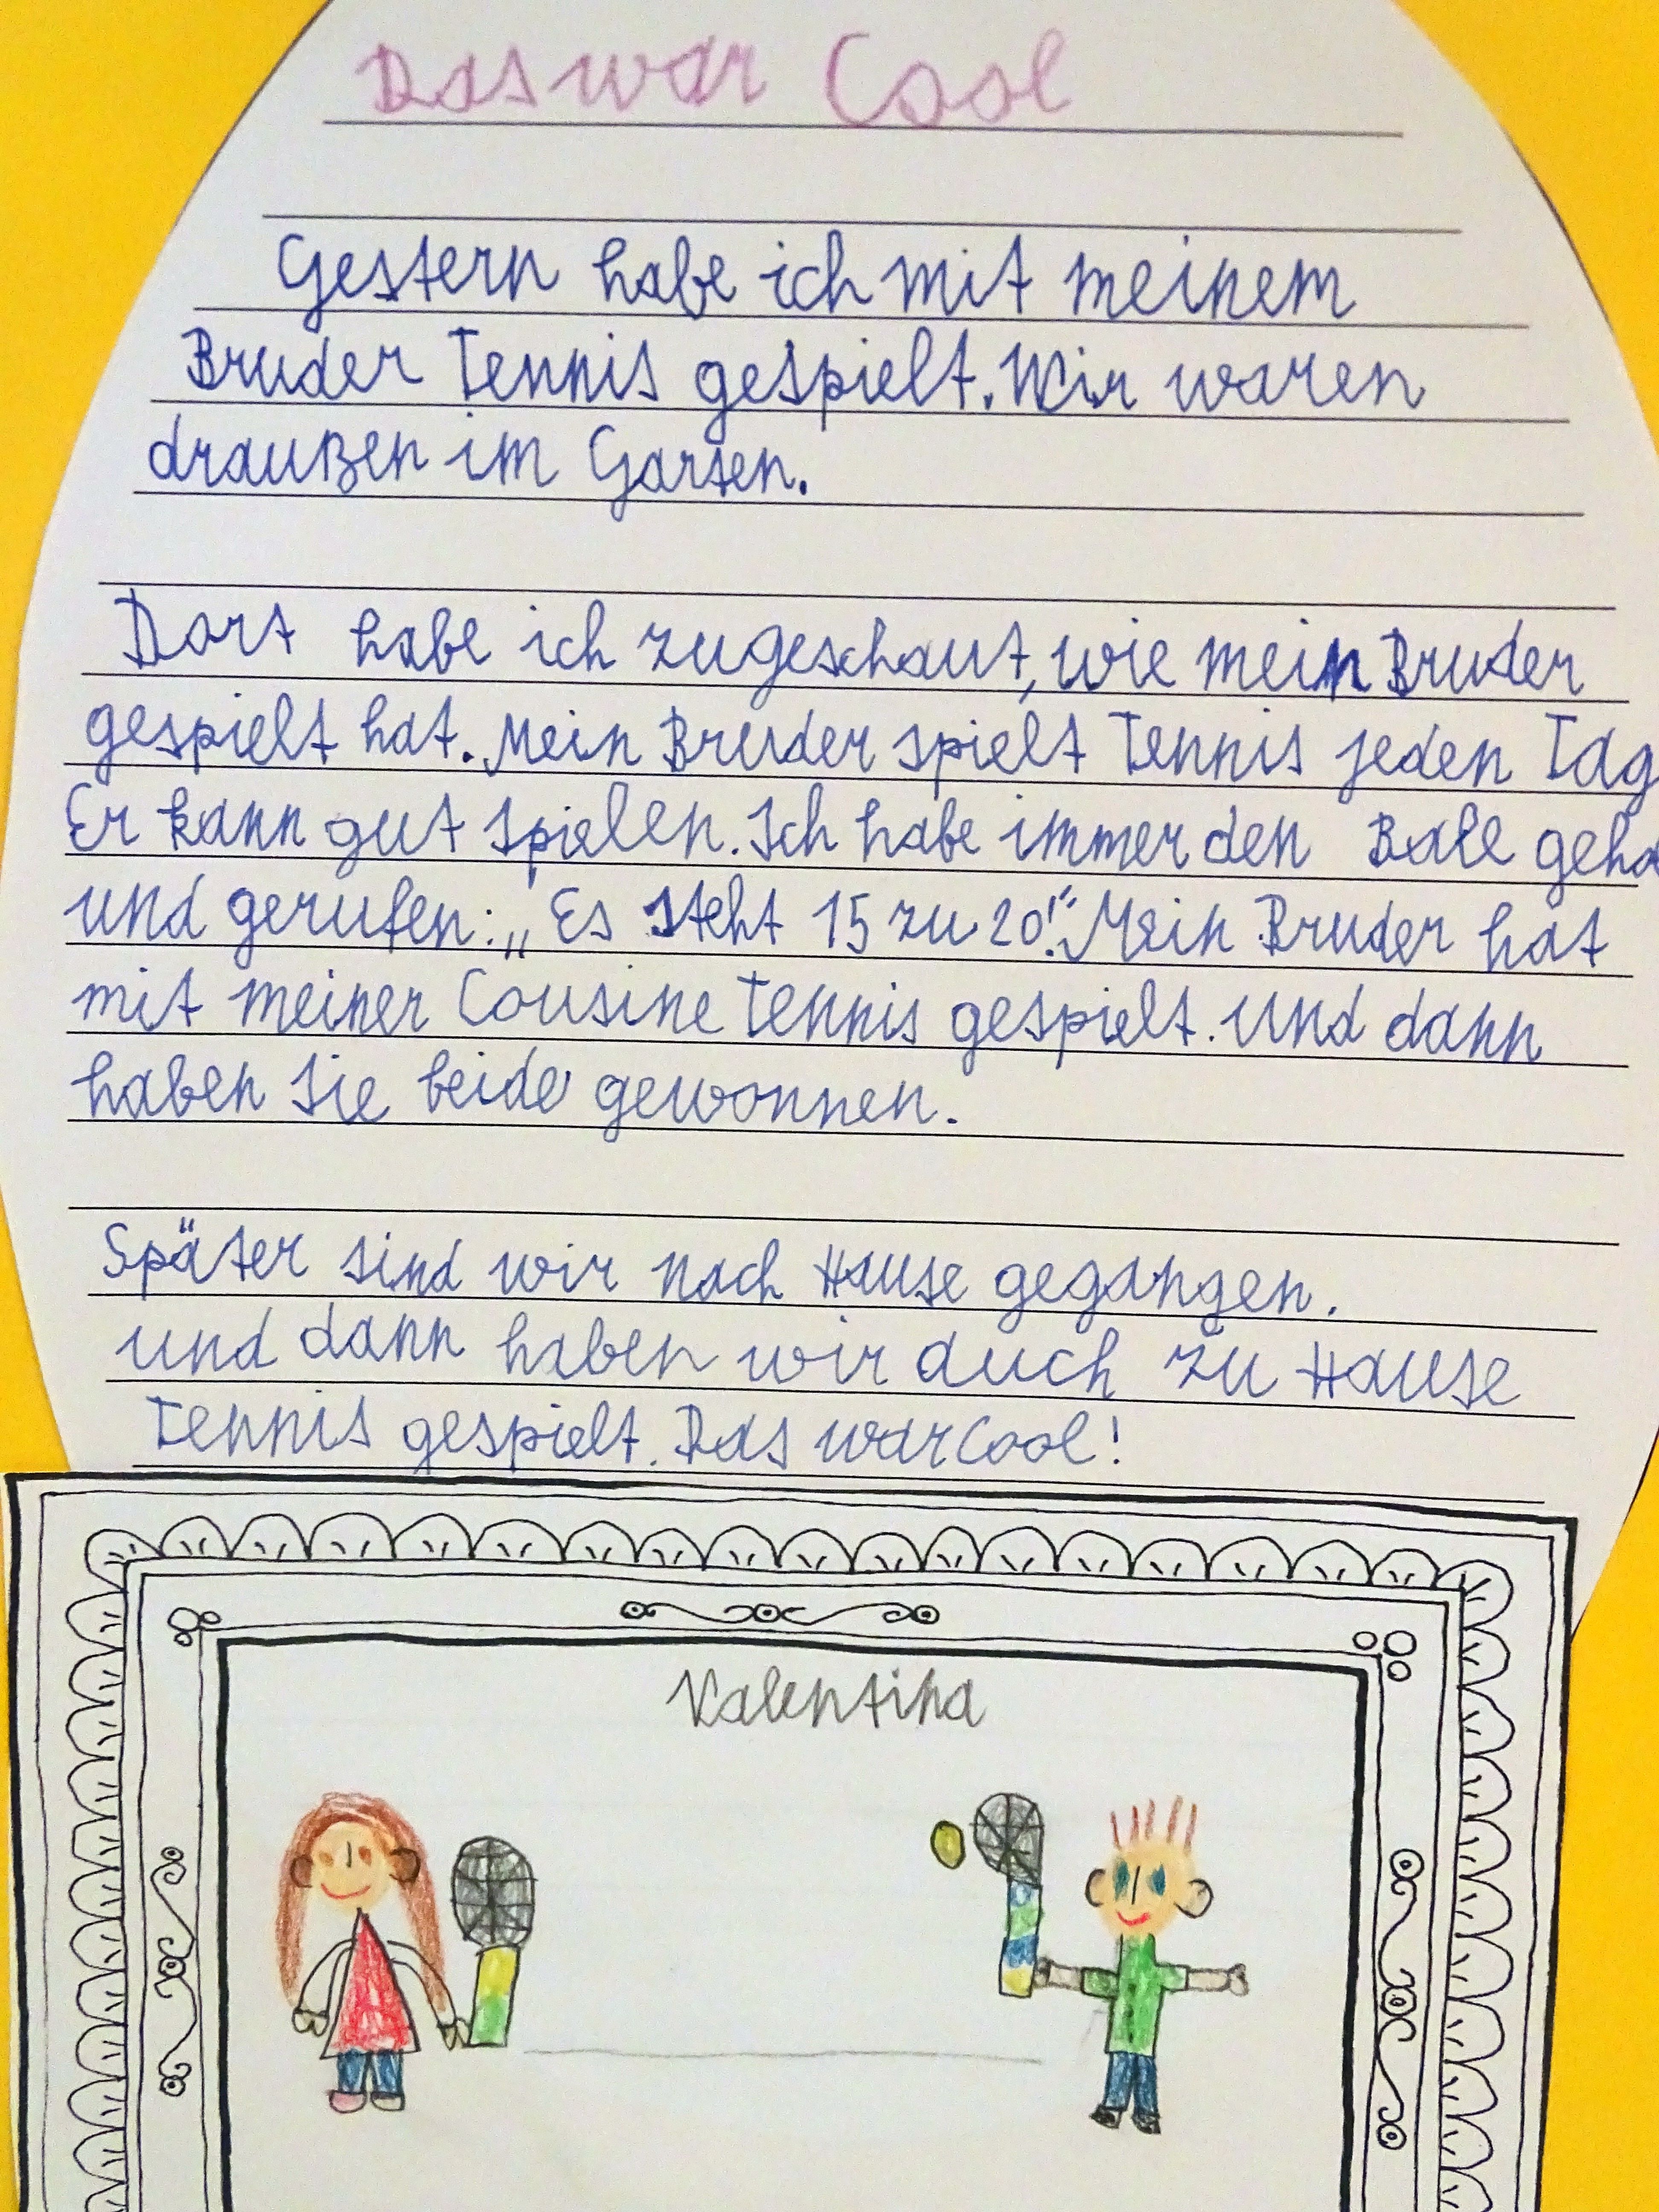 Das war Cool
Gestern habe ich mit meinem
Bruder Tennis gespielt. Wir waren
draußen im Garten.
Dort habe ich zugeschaut, wie mein Bruder
gespielt hat. Mein Bruder spielt Tennis jeden Tag
Er kann gut spielen. Ich habe immer den Ball
und gerufen: „Es steht 15 zu 20!“ Mein Bruder hat
mit meiner Cousine Tennis gespielt. Und dann
haben sie beide gewonnen.
Später sind wir nach Hause gegangen.
und dann haben wir auch zu Hause
Tennis gespielt. Das war Cool!
Valentina